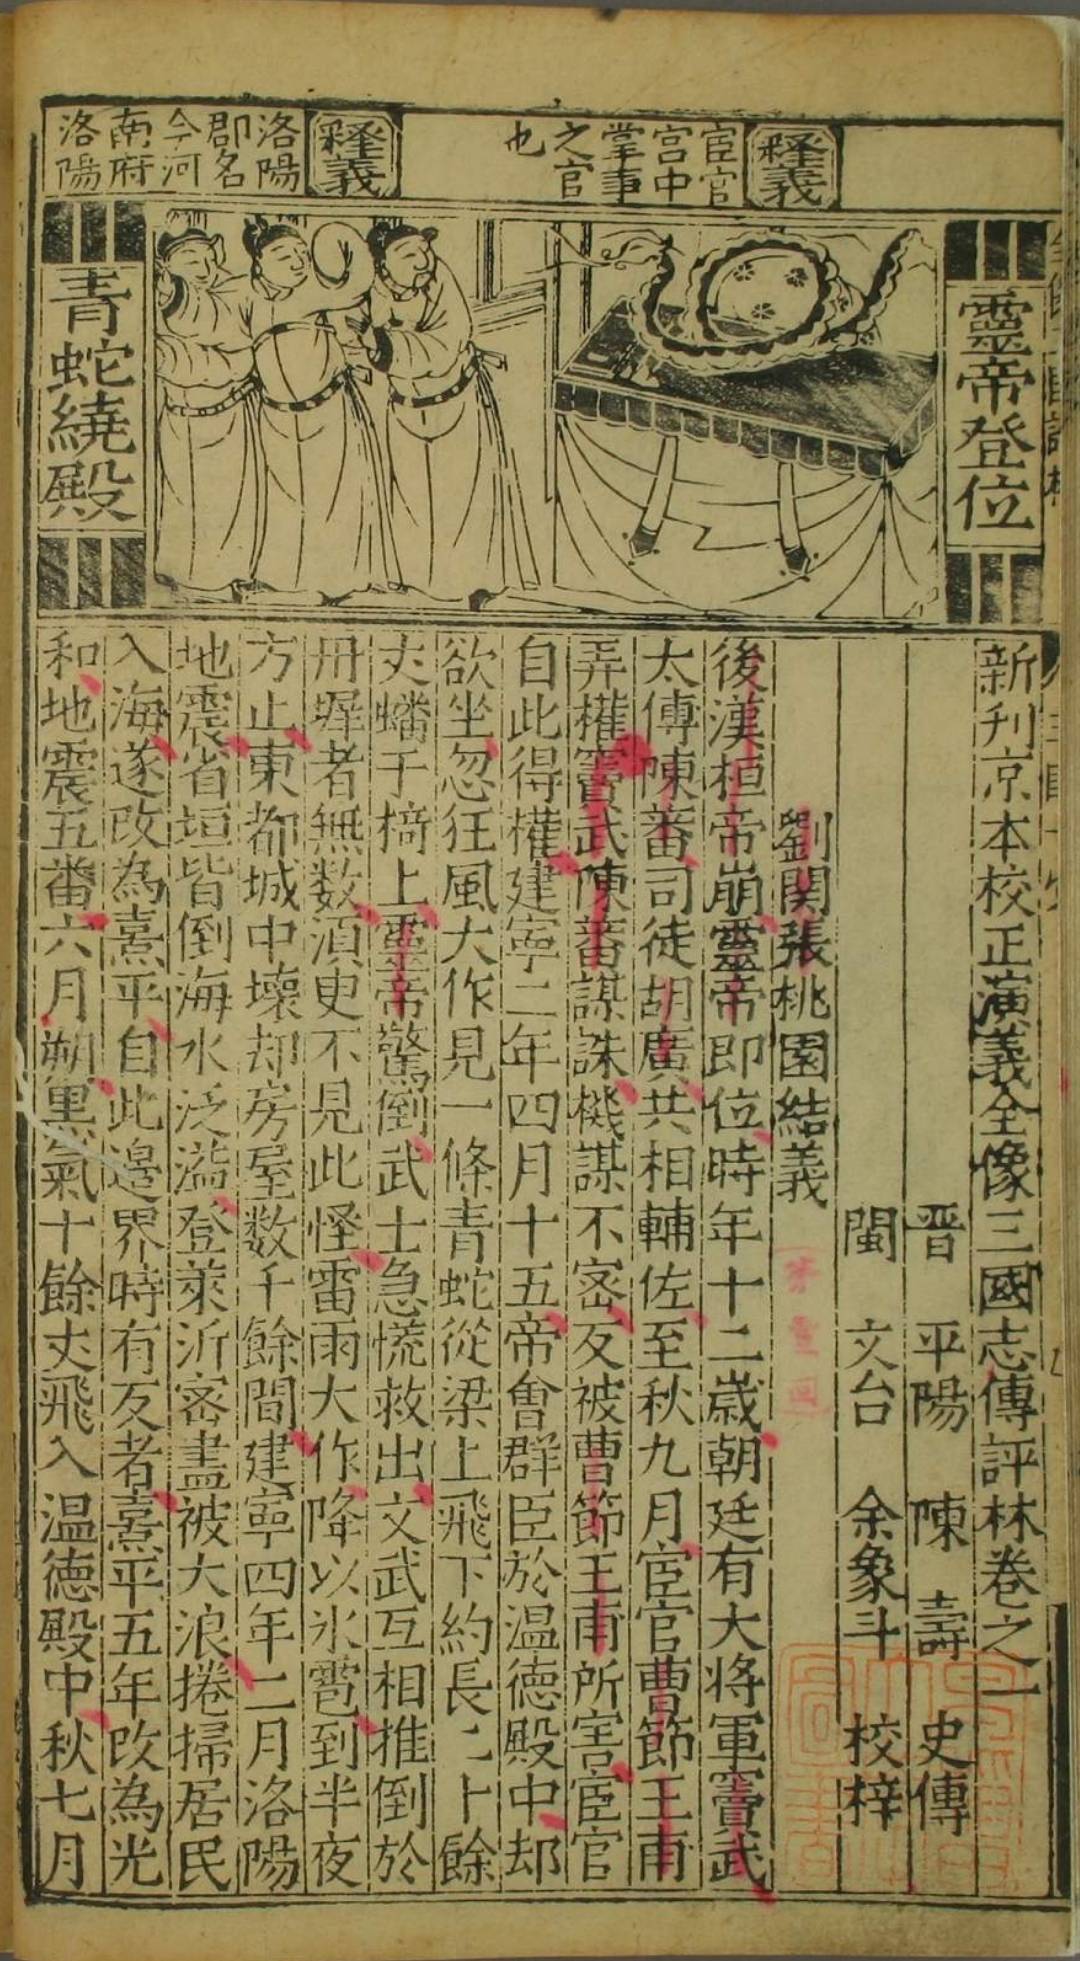 釋義
宦官
宮中
掌事
之官
也
釋義
洛陽
郡名
今河
南府
洛陽
靈帝登位
青蛇繞殿
新刋京本校正演義全像三國志傳評林卷之一
晉　平陽　陳　壽　史傳
閩　文台　余象斗　校梓
劉関張桃園結義
後漢桓帝崩靈帝即位時年十二歲朝廷有大將軍竇武
太傅陳蕃司徒胡廣共相輔佐至秋九月宦官曹節王甫
弄權竇武陳蕃謀誅機謀不密反被曹節王甫所害宦官
自此得權建寧二年四月十五帝會群臣於温德殿中却
欲坐忽狂風大作見一條青蛇從梁上飛下約長二十餘
丈蟠于椅上靈帝驚倒武士急慌救出文武互相推倒於
丹墀者無数須更不見此怪雷雨大作降以氷雹到半夜
方止東都城中壞却房屋数千餘間建寧四年二月洛陽
地震省垣皆倒海水泛溢登萊沂密盡被大浪捲掃居民
入海遂改為熹平自此邉界時有反者熹平五年改為光
和地震五番六月朔黑氣十餘丈飛入温德殿中秋七月